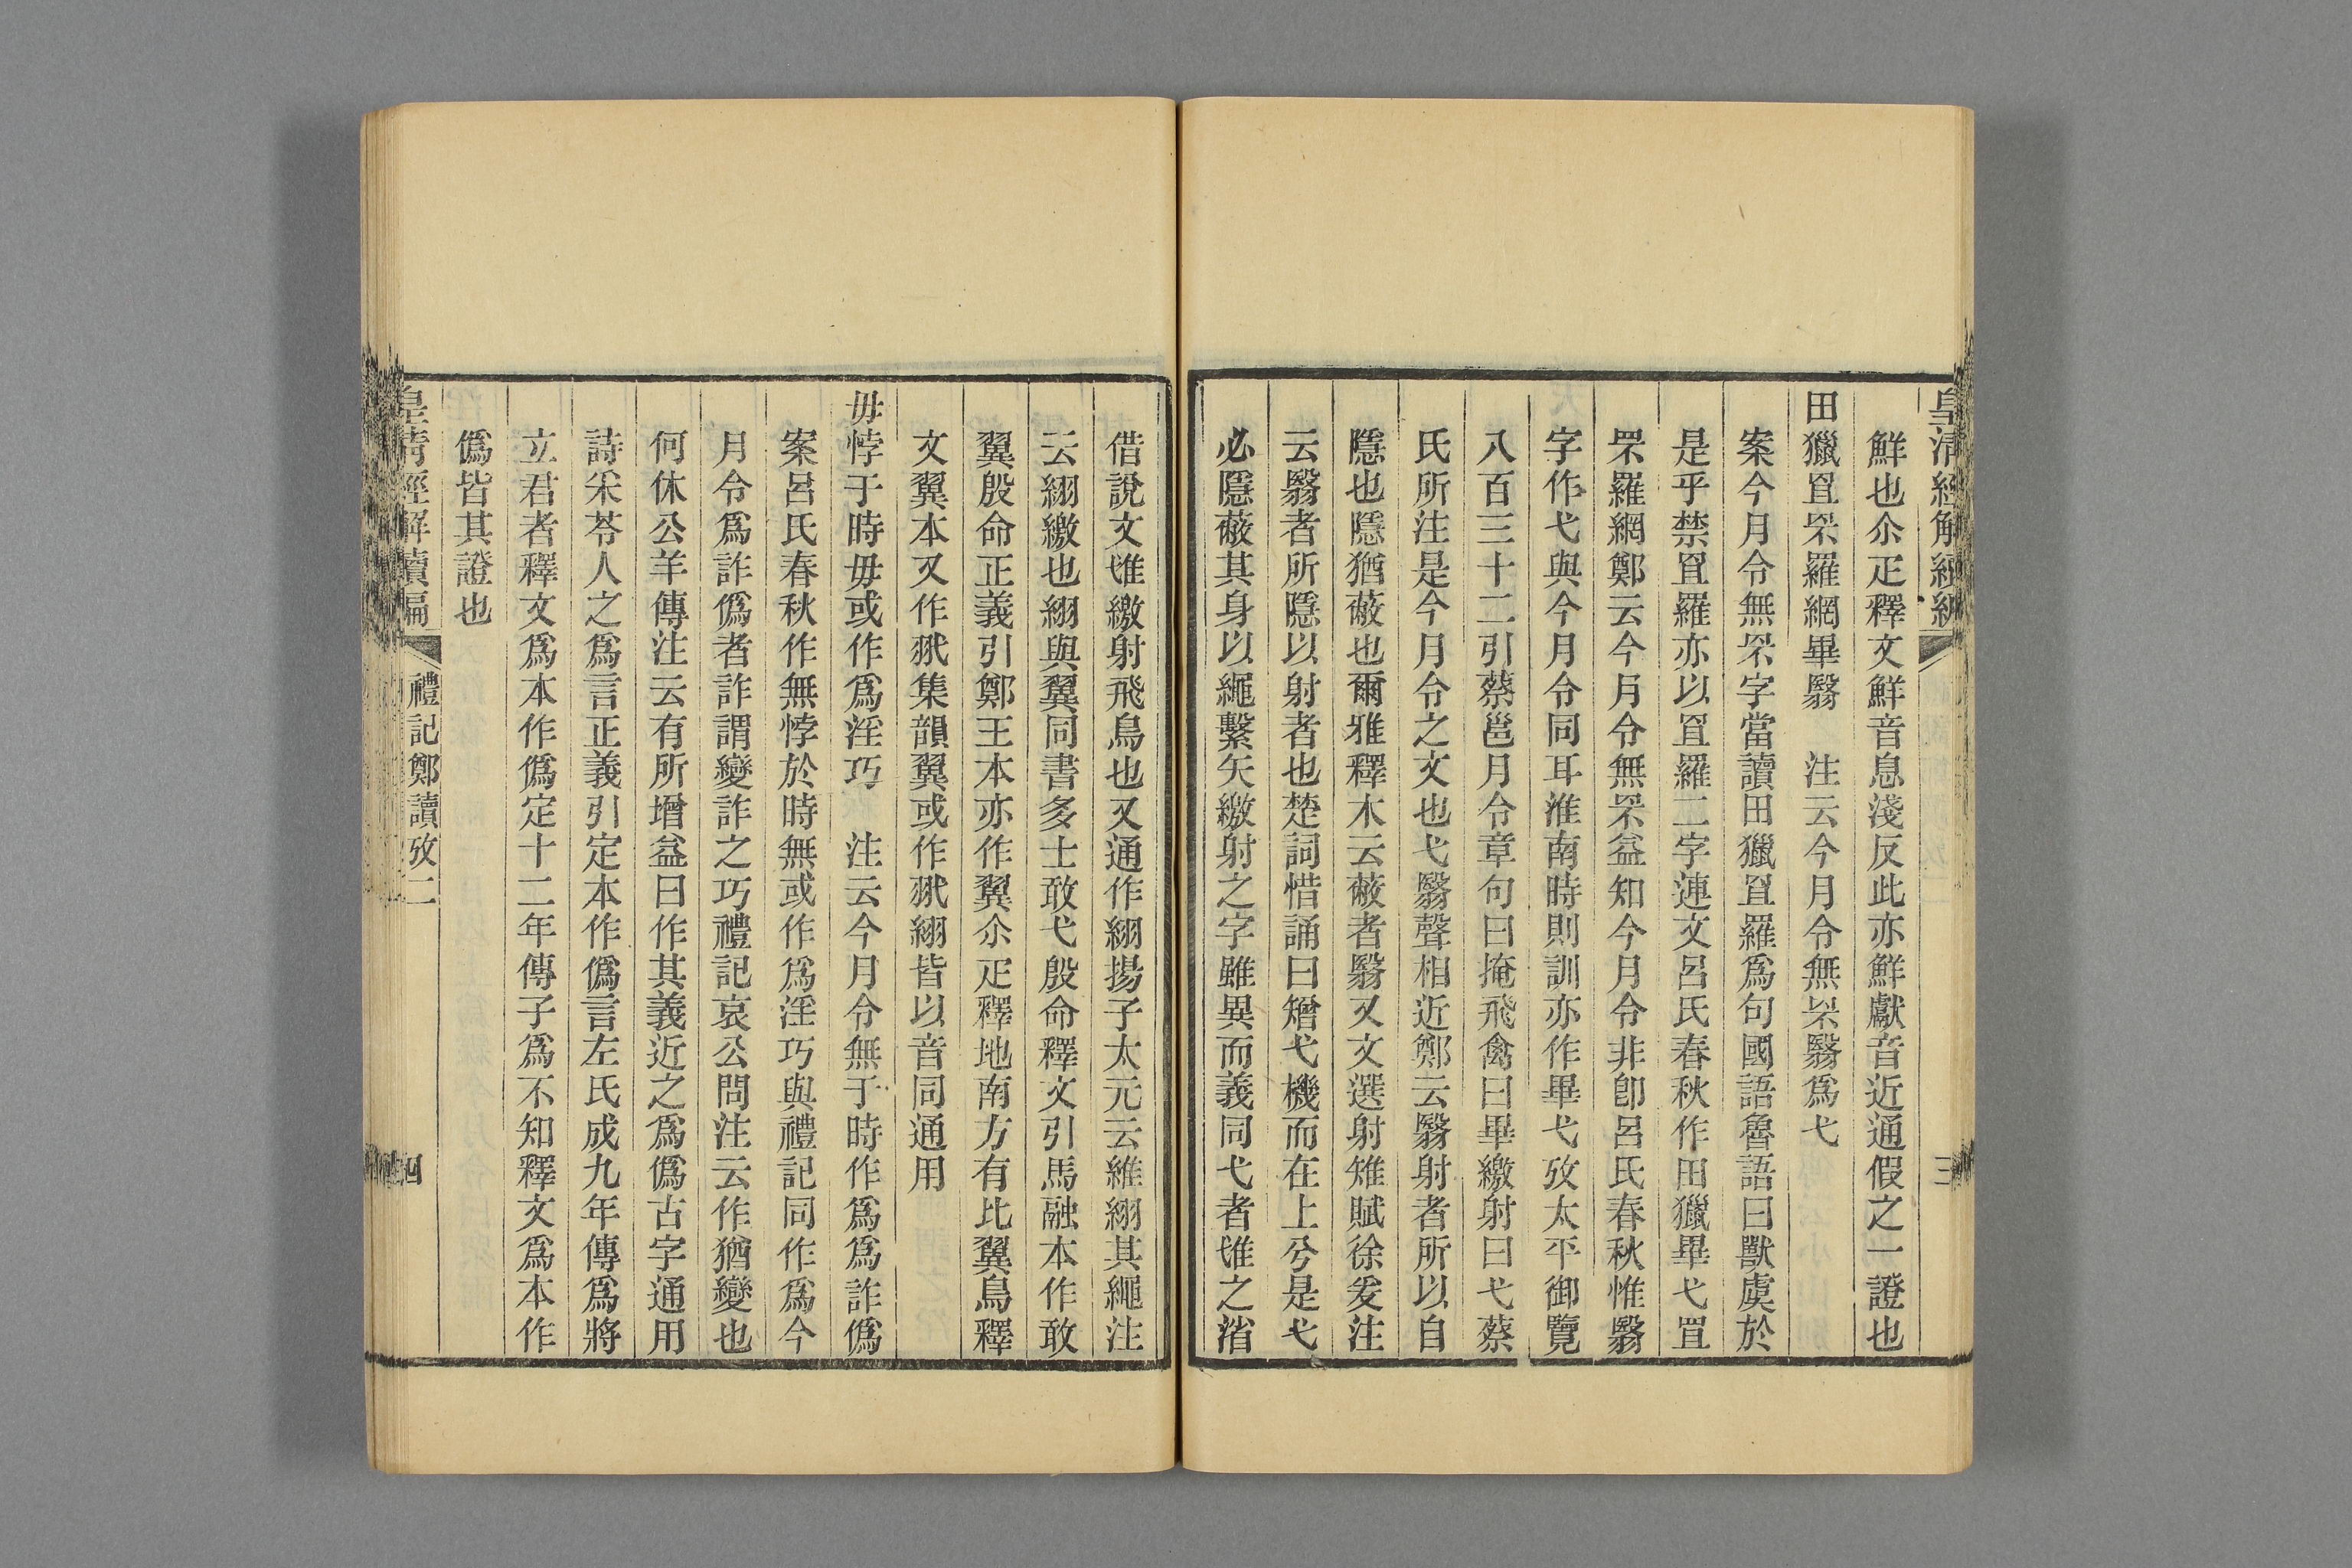 皇清經解續編
三
鮮也尒疋釋文鮮音息淺反此亦鮮獻音近通假之一證也
田獵罝罘羅網畢翳　注云今月令無罘翳爲弋
案今月令無罘字當讀田獵罝羅爲句國語魯語曰獸虞於
是乎禁罝羅亦以罝羅二字連文呂氏春秋作田獵畢弋罝
罘羅網鄭云今月令無罘益知今月令非卽呂氏春秋惟翳
字作弋與今月令同耳淮南時則訓亦作畢弋攷太平御覽
八百三十二引蔡邕月令章句曰掩飛禽曰畢繳射曰弋蔡
氏所注是今月令之文也弋翳聲相近鄭云翳射者所以自
隱也隱猶蔽也爾雅釋木云蔽者翳又文選射雉賦徐爰注
云翳者所隱以射者也楚詞惜誦曰矰弋機而在上兮是弋
必隱蔽其身以繩繫矢繳射之字雖異而義同弋者隿之渻
借說文隿繳射飛鳥也又通作䋚揚子太元云維䋚其繩注
云䋚繳也䋚與翼同書多士敢弋殷命釋文引馬融本作敢
翼殷命正義引鄭王本亦作翼尒疋釋地南方有比翼鳥釋
文翼本又作翐集韻翼或作翐䋚皆以音同通用
毋悖于時毋或作爲淫巧　注云今月令無于時作爲爲詐僞
案呂氏春秋作無悖於時無或作爲淫巧與禮記同作爲今
月令爲詐僞者詐謂變詐之巧禮記哀公問注云作猶變也
何休公羊傳注云有所增益曰作其義近之爲僞古字通用
詩采苓人之爲言正義引定本作僞言左氏成九年傳爲將
立君者釋文爲本作僞定十二年傳子爲不知釋文爲本作
僞皆其證也
皇清經解續編
禮記鄭讀攷二
四